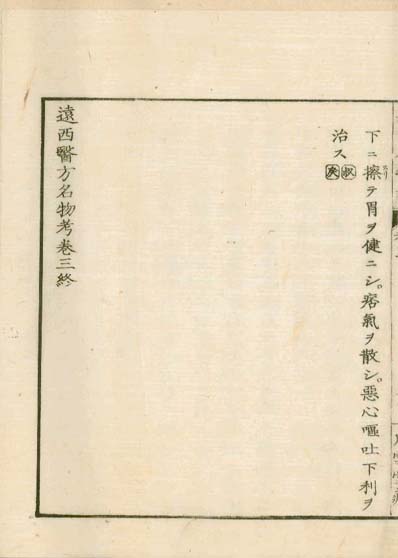 下ニ擦テ胃ヲ健ニシ。痞氣ヲ散シ。惡心嘔吐下利ヲ
治ス
遠西醫方名物考卷三終